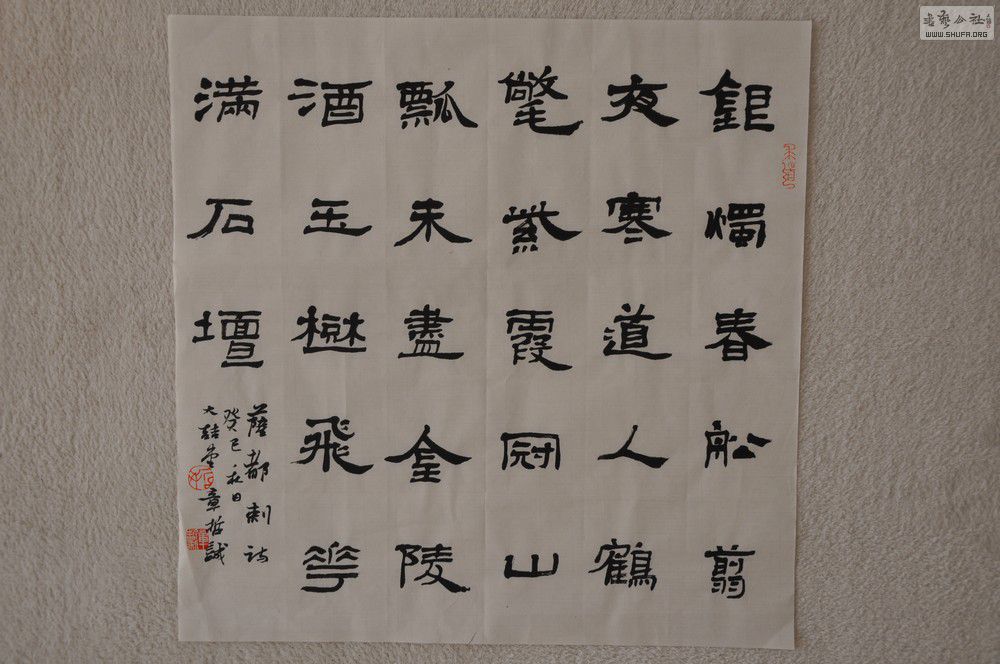 鉅燭春舩翦
夜寒道人鶴
氅紫霞冠山
瓢未盡金陵
酒玉飛華
滿石壇
薩都剌詩
癸巳秋日
大喆堂章哲誠
書藝公社
WWW.SHUFA.ORG